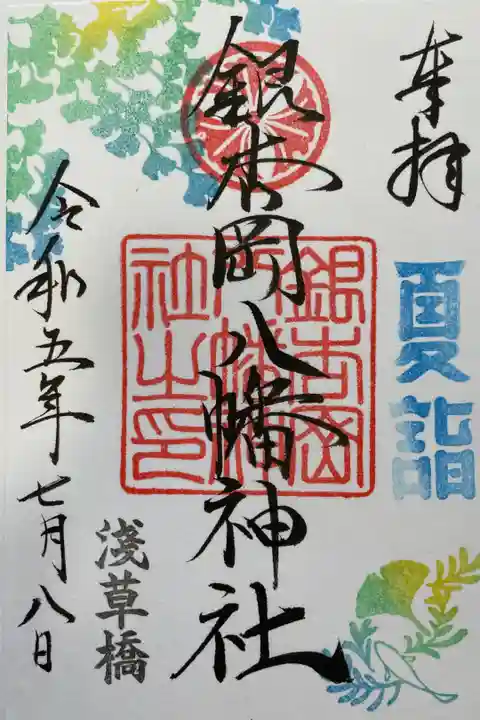 奉拝
夏詣
銀杏岡八幡神社
銀杏岡
社之印
令和五年七月八日
淺草橋